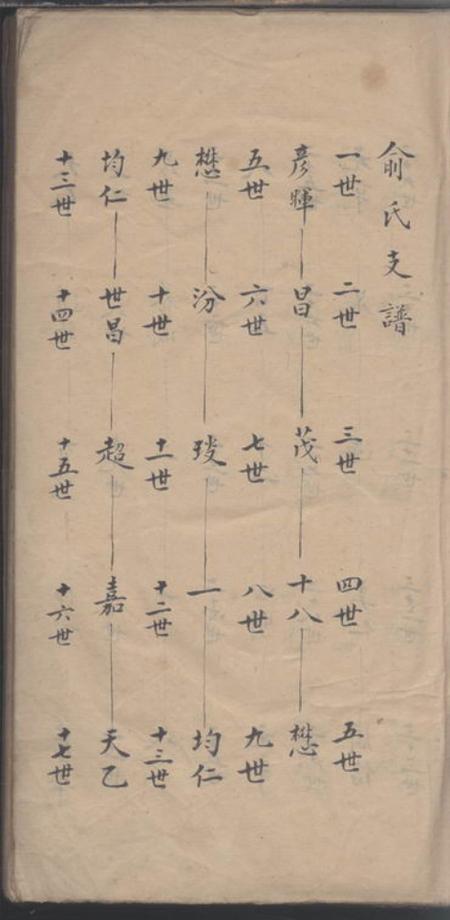 俞氏支譜
一世 二世 三世 四世 五世
彥暉 昌 茂 十八 懋
五世 六世 七世 八世 九世
懋 汾 琰 一 均仁
九世 十世 十一世 十二世 十三世
均仁 世昌 超 嘉 天乙
十三世 十四世 十五世 十六世 十七世